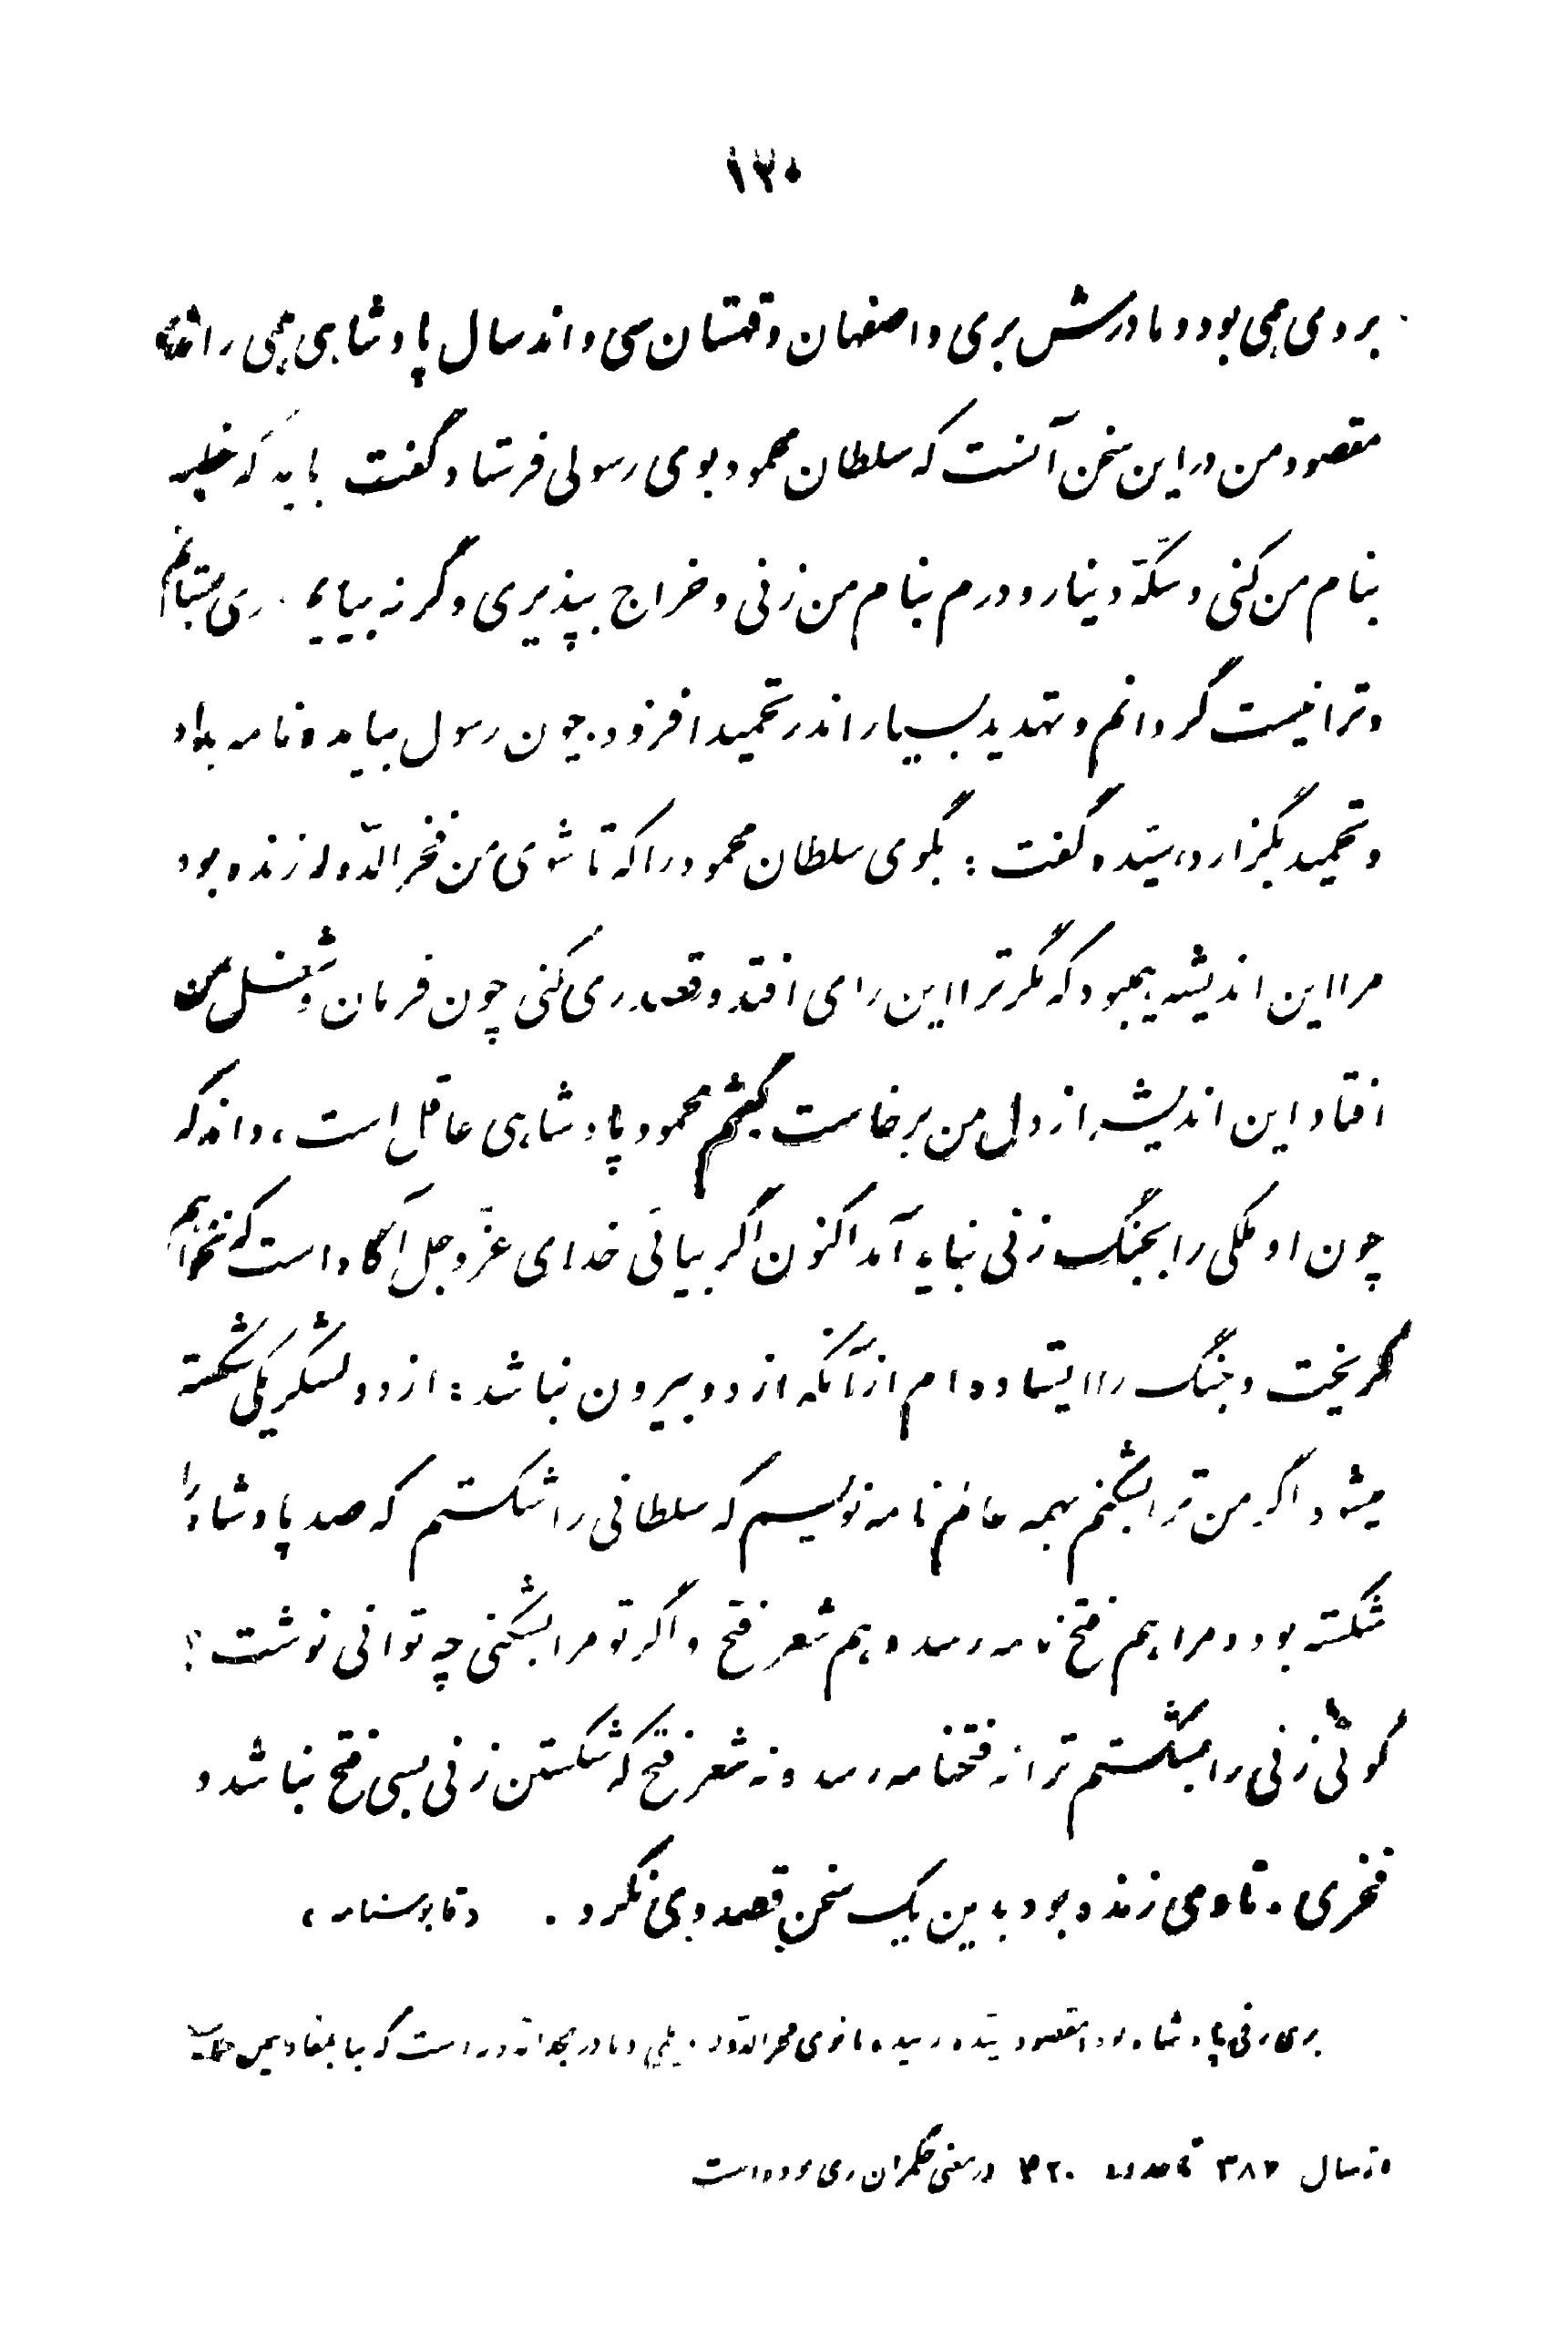 ۱۲۰
بر وی می بود و مادرش بری و اصفهان و قهستان سی و اند سال پادشاهی همی راند
مقصود من در این سخن آنست که سلطان محمود بوی رسولی فرستاد و گفت باید که خطبه
بنام من کنی و سکّه دینار و درم بنام من زنی و خراج بپذیری و گرنه بیایم ری بستانم
و ترا نیست گردانم و تهدید بسیار اندر تحمید افزود. چون رسول بیامد و نامه بداد
و تحمید بگزارد، سیّده گفت : بگوی سلطان محمود را که تا شوی من فخر الدّوله زنده بود
مرا این اندیشه همیبود که مگر ترا این رای افتد و قصد ری کنی چون فرمان و شغل من
افتاد این اندیشه از دل من برخاست گفتم محمود پادشاهی عاقل است، داند که
چون او ملکی را بجنگ زنی نباید آمد اکنون اگر بیائی خدای عزّ و جل آگاه است که نخواهم
گریخت و جنگ را ایستاده ام از آنکه از دو بیرون نباشد : از دو لشگر یکی شکسته
میشود اگر من ترا بشکنم بهمه عالم نامه نویسم که سلطانی را شکستم که صد پادشاه را
شکسته بود و مرا هم فتح نامه رسد و هم شعر فتح و اگر تو مرا بشکنی چه توانی نوشت ؟
گوئی زنی را بشکستم ترا نه فتحنامه رسد و نه شعر فتح که شکستن زنی بسی فتح نباشد و
فخری . تا وی زنده بود باین یک سخن قصد وی نکرد . «قابوسنامه»
بری زنی پادشاه بود، مقصود سیّده بانوی فخر الدّوله دیلمی و مادر مجد الدّوله است که
از سال ۳۸۷ تا حدود ۴۲۰ در معنی حکمران ری بوده است